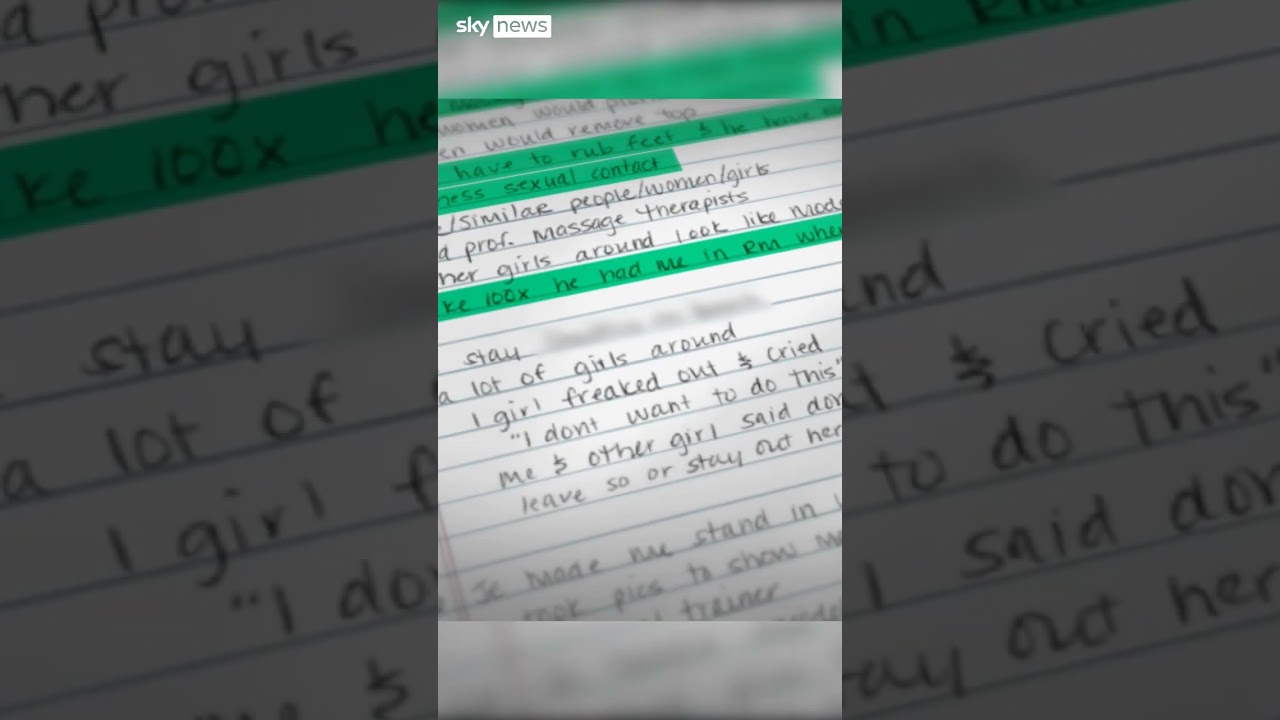 sky news
women would
en would remove top
have to rub feet & he have
ness sexual contact
e/similar people/women/girls
a prof. massage therapists
her girls around look like mode
ke 100x he had me in rm when
stay
a lot of girls around
1 girl freaked out & cried
"I dont want to do this"
me & other girl said don
leave so or stay out her
Je made me stand in
took pics to show
trainer